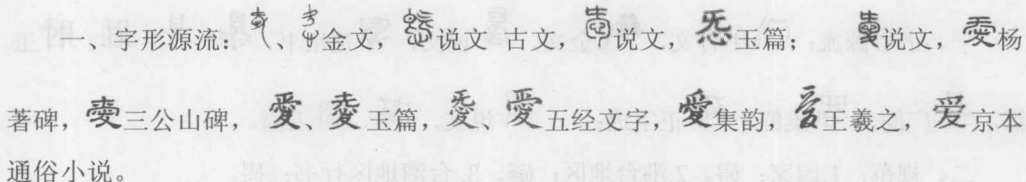 一、字形源流：、金文，说文 古文，说文，㤅玉篇；㥶说文，㤅杨
著碑，三公山碑，愛、玉篇，㤅、愛五经文字，愛集韵，王羲之，爱京本
通俗小说。